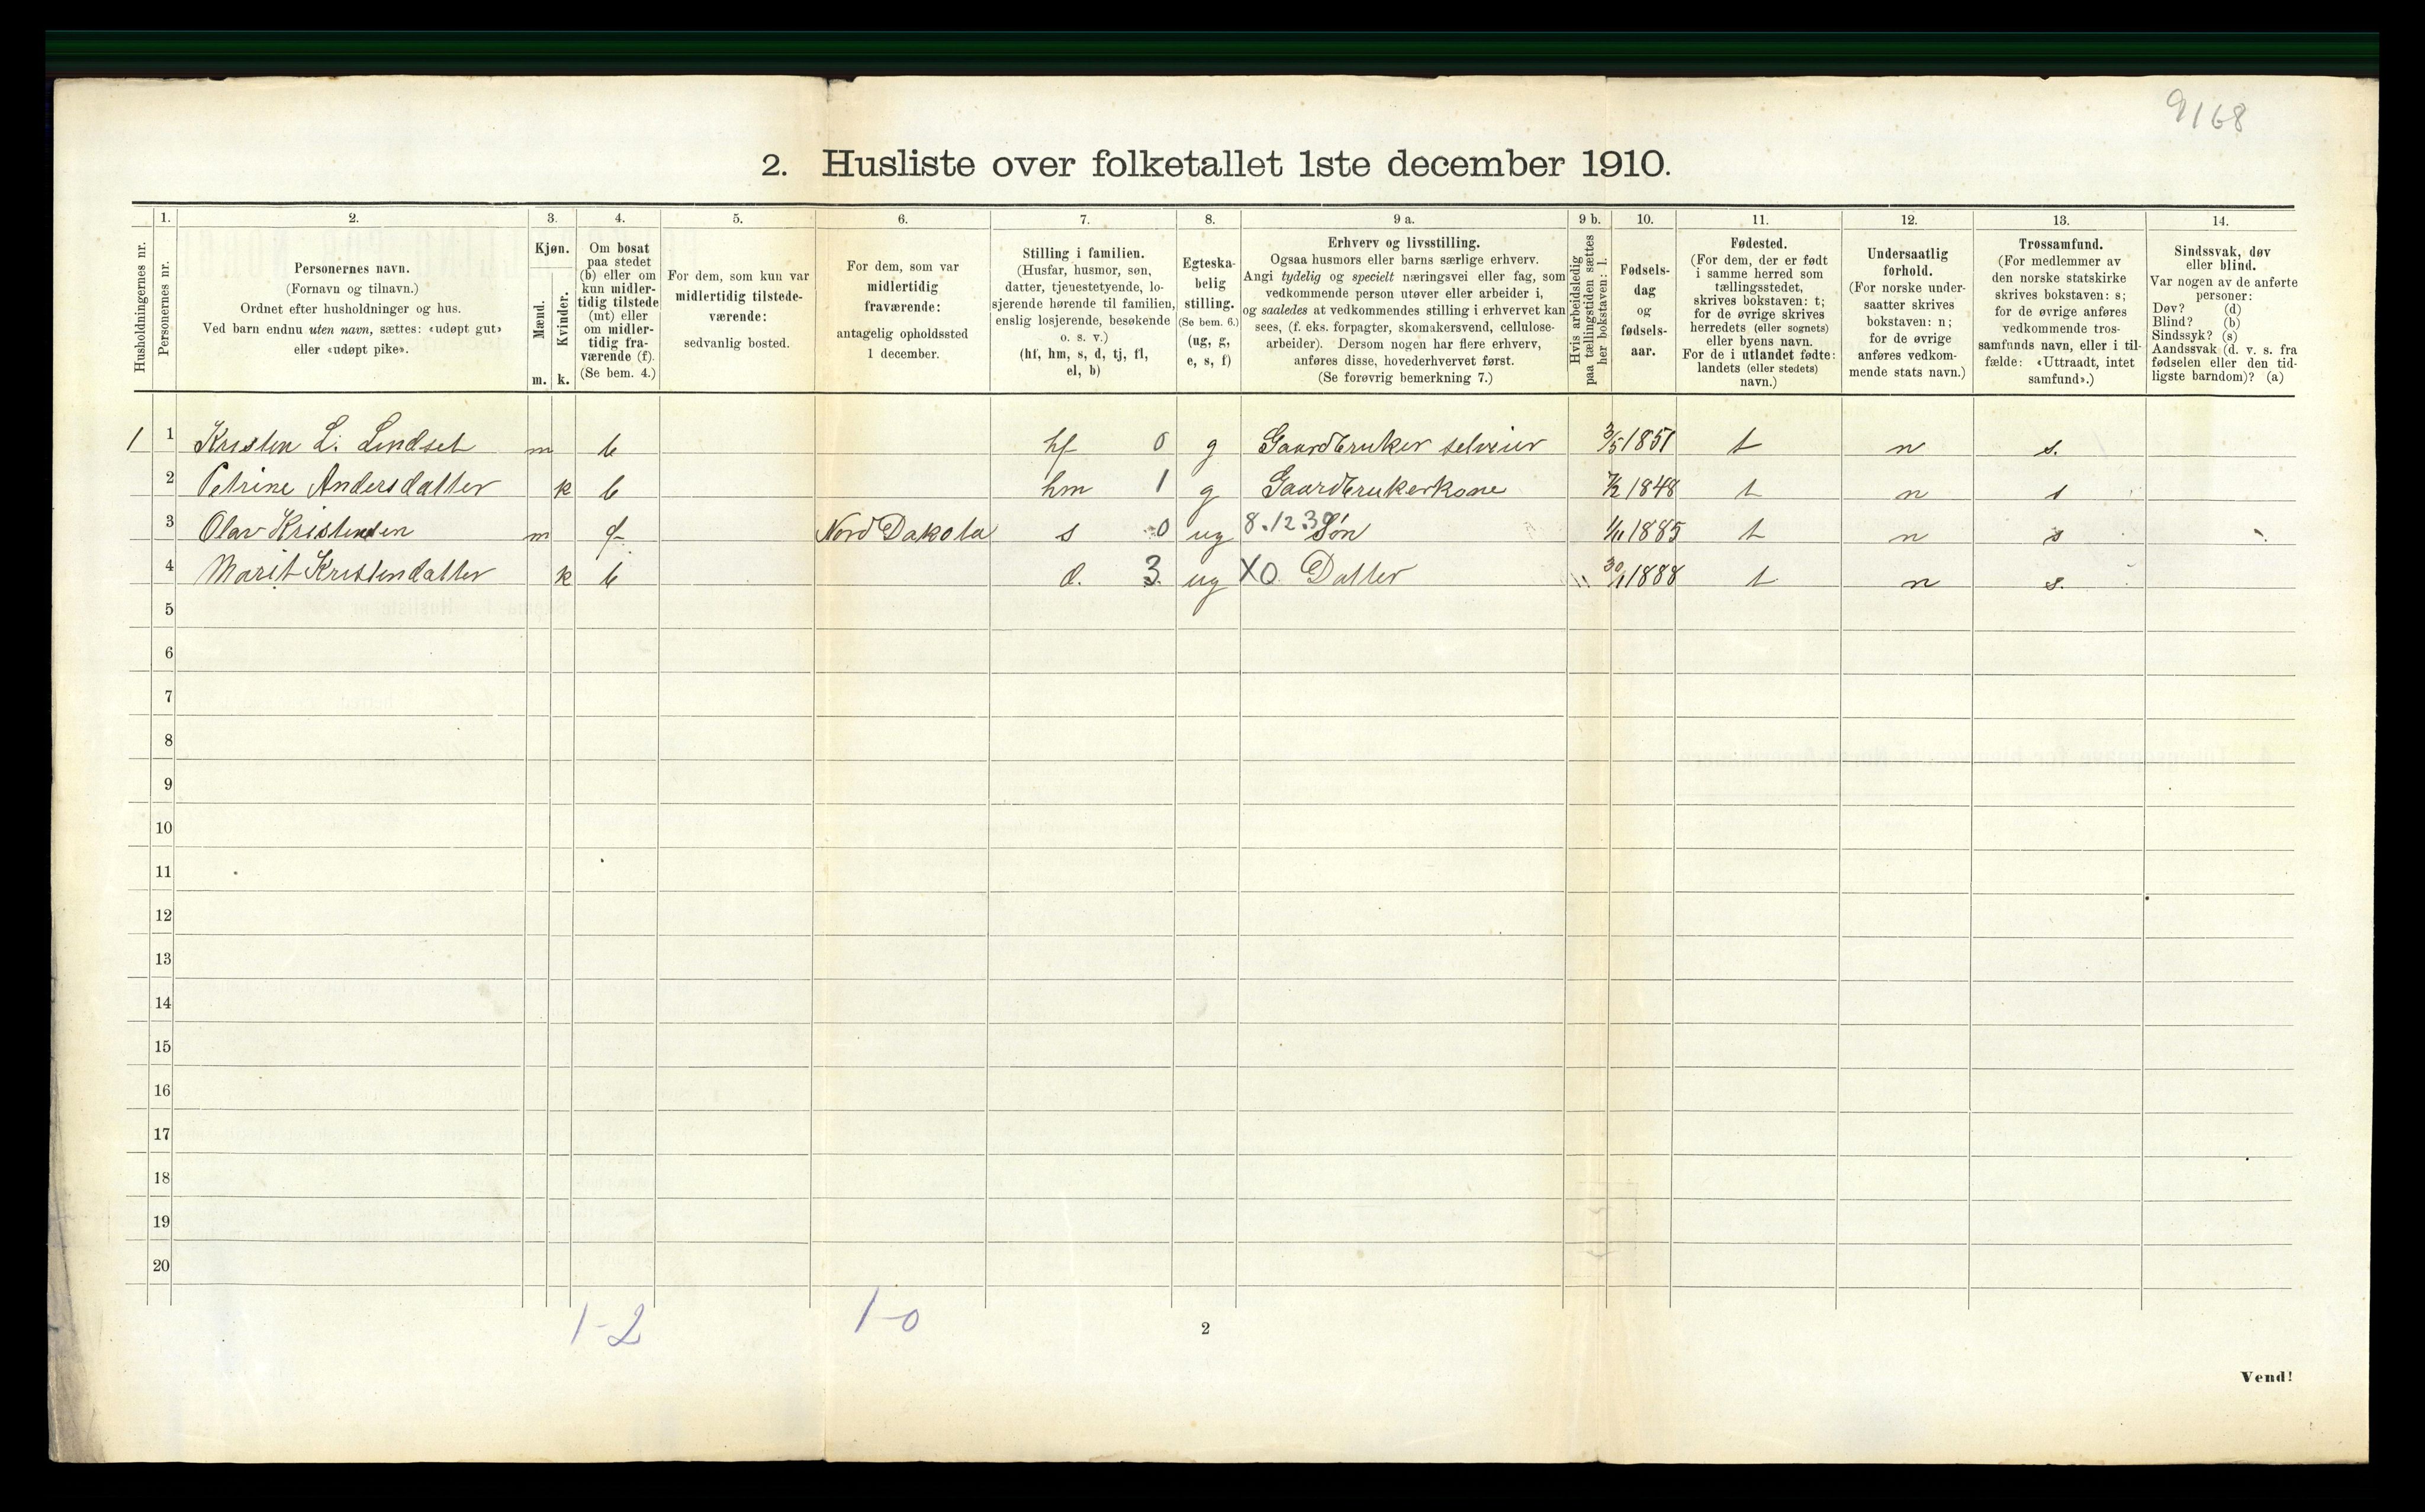 9168
2. Husliste over folketallet 1ste december 1910.
1. 2. 3. 4. 5. 6. 7. 8. 9 a. 9 b. 10. 11. 12. 13. 14.
Husholdningernes nr.
Personernes nr.
Personernes navn.
(Fornavn og tilnavn.)
Ordnet efter husholdninger og hus.
Ved barn endnu uten navn, sættes: «udøpt gut»
eller «udøpt pike».
Kjøn.
Mænd.
Kvinder.
m. k.
Om bosat
paa stedet
(b) eller om
kun midler-
tidig tilstede
(mt) eller
om midler-
tidig fra-
værende (f).
(Se bem. 4.)
For dem, som kun var
midlertidig tilstede-
værende:
sedvanlig bosted.
For dem, som var
midlertidig
fraværende:
antagelig opholdssted
1 december.
Stilling i familien.
(Husfar, husmor, søn,
datter, tjenestetyende, lo-
sjerende hørende til familien,
enslig losjerende, besøkende
o. s. v.)
(hf, hm, s, d, tj, fl,
el, b)
Egteska-
belig
stilling.
(Se bem. 6.)
(ug, g,
e, s, f)
Erhverv og livsstilling.
Ogsaa husmors eller barns særlige erhverv.
Angi tydelig og specielt næringsvei eller fag, som
vedkommende person utøver eller arbeider i,
og saaledes at vedkommendes stilling i erhvervet kan
sees, (f. eks. forpagter, skomakersvend, cellulose-
arbeider). Dersom nogen har flere erhverv,
anføres disse, hovederhvervet først.
(Se forøvrig bemerkning 7.)
Hvis arbeidsledig
paa tællingstiden sættes
her bokstaven: l.
Fødsels-
dag
og
fødsels-
aar.
Fødested.
(For dem, der er født
i samme herred som
tællingsstedet,
skrives bokstaven: t;
for de øvrige skrives
herredets (eller sognets)
eller byens navn.
For de i utlandet fødte:
landets (eller stedets)
navn.)
Undersaatlig
forhold.
(For norske under-
saatter skrives
bokstaven: n;
for de øvrige
anføres vedkom-
mende stats navn.)
Trossamfund.
(For medlemmer av
den norske statskirke
skrives bokstaven: s;
for de øvrige anføres
vedkommende tros-
samfunds navn, eller i til-
fælde: «Uttraadt, intet
samfund».)
Sindssvak, døv
eller blind.
Var nogen av de anførte
personer:
Døv? (d)
Blind? (b)
Sindssyk? (s)
Aandssvak (d. v. s. fra
fødselen eller den tid-
ligste barndom)? (a)
1 1 Kristen L. Lindset m b hf 0 g Gaardbruker selveier 3/5 1851 t n s.
2 Petrine Andersdatter k b hm 1 g Gaardbrukerkone 1848 t n s
3 Olav Kristensen m f Nord Dakota s 0 ug 8.12.30 Søn 1/11 1885 t n s
4 Marit Kristendatter k b d. 3 ug XO Datter 30/1 1888 t n s.
5
6
7
8
9
10
11
12
13
14
15
16
17
18
19
20
1-2 1-0
2
Vend!